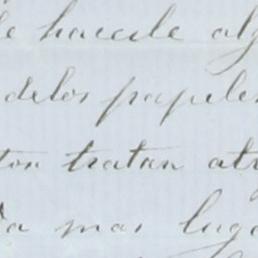 hacerle alg
delos papeles
ton tratan atr
da mas luga